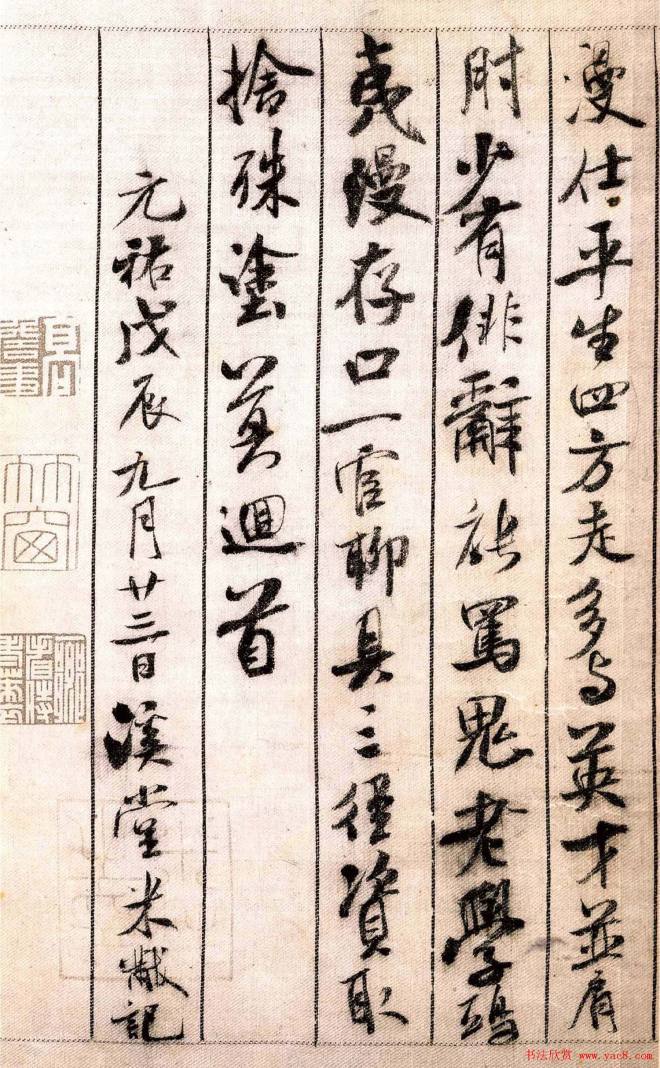 漫仕平生四方走多与英才並肩
肘少有俳辭能罵鬼老學鴟
夷漫存口一官聊具三徑資取
捨殊塗莫迴首
元祐戊辰九月廿三日溪堂米黻記
竹窗
书法欣赏 www.yac8.com